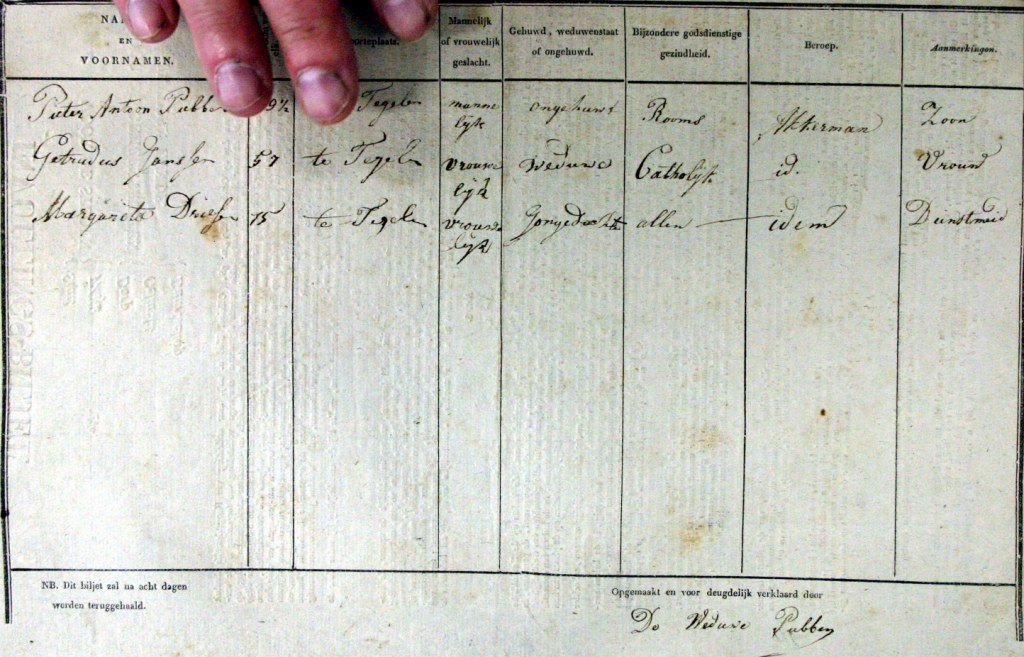 NA
EN
VOORNAMEN.
Mannelijk of vrouwelijk geslacht.
Gehuwd, weduwenstaat of ongehuwd.
Bijzondere godsdienstige gezindheid.
Beroep.
Aanmerkingen.
Pieter Antoon Pubben Tegelen mannlijk ongehuwt Rooms Akkerman Zoon
Getrudus Janssen 57 te Tegelen vrouwelijk Weduwe Catholijk id. Vrouw
Margareta Driessen 15 te Tegelen vrouwlijk allen idem Deinstmeid
NB. Dit biljet zal na acht dagen
worden teruggehaald.
Opgemaakt en voor deugdelijk verklaard door
De Weduwe Pubben